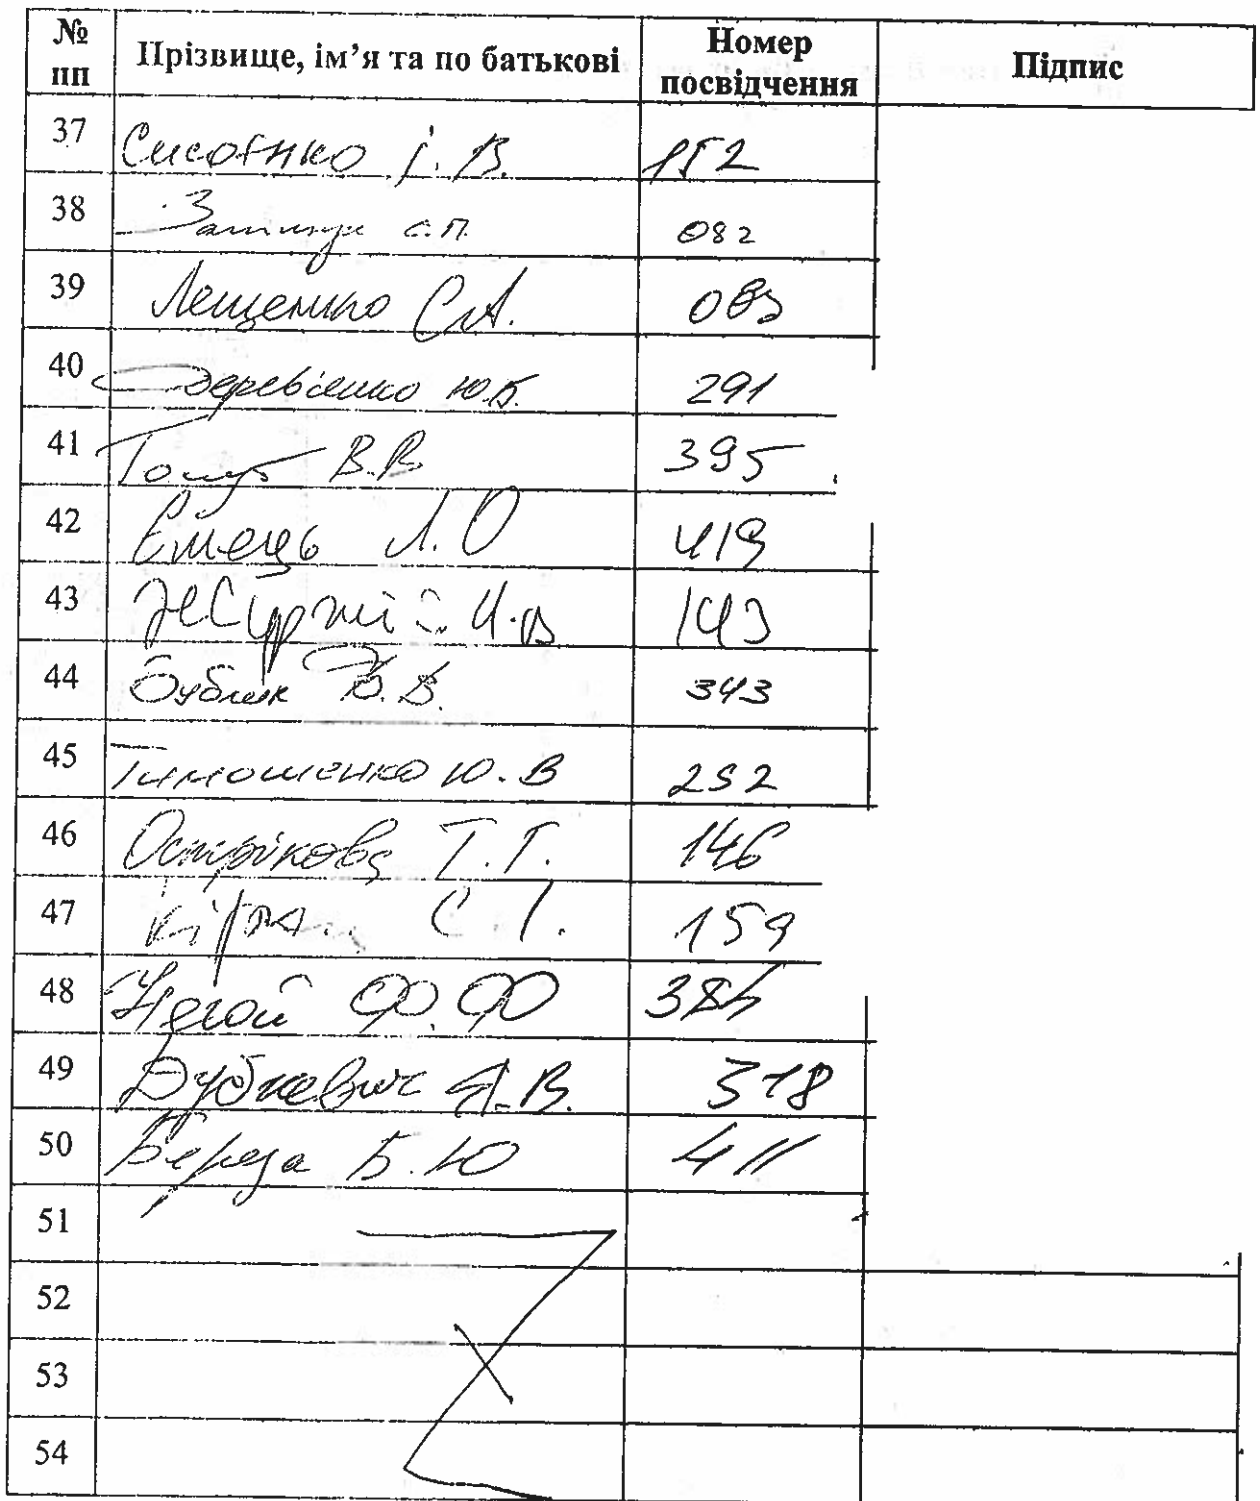 № пп Прізвище, ім’я та по батькові Номер посвідчення Підпис
37 Сисоєнко І. В. 152
38 С.П. 082
39 Лещенко С.А. 083
40 Дерев'янко Ю.Б. 291
41 Голуб В.В 395
42 Ємець Л.О 419
43 І.В 143
44 Бублик Ю.В. 343
45 Тимошенко Ю.В 252
46 Острікова Т.Г. 146
47 С І. 159
48 Негой Ф.Ф
49 Дубневич Я.В. 318
50 Береза Б.Ю 411
51
52
53
54